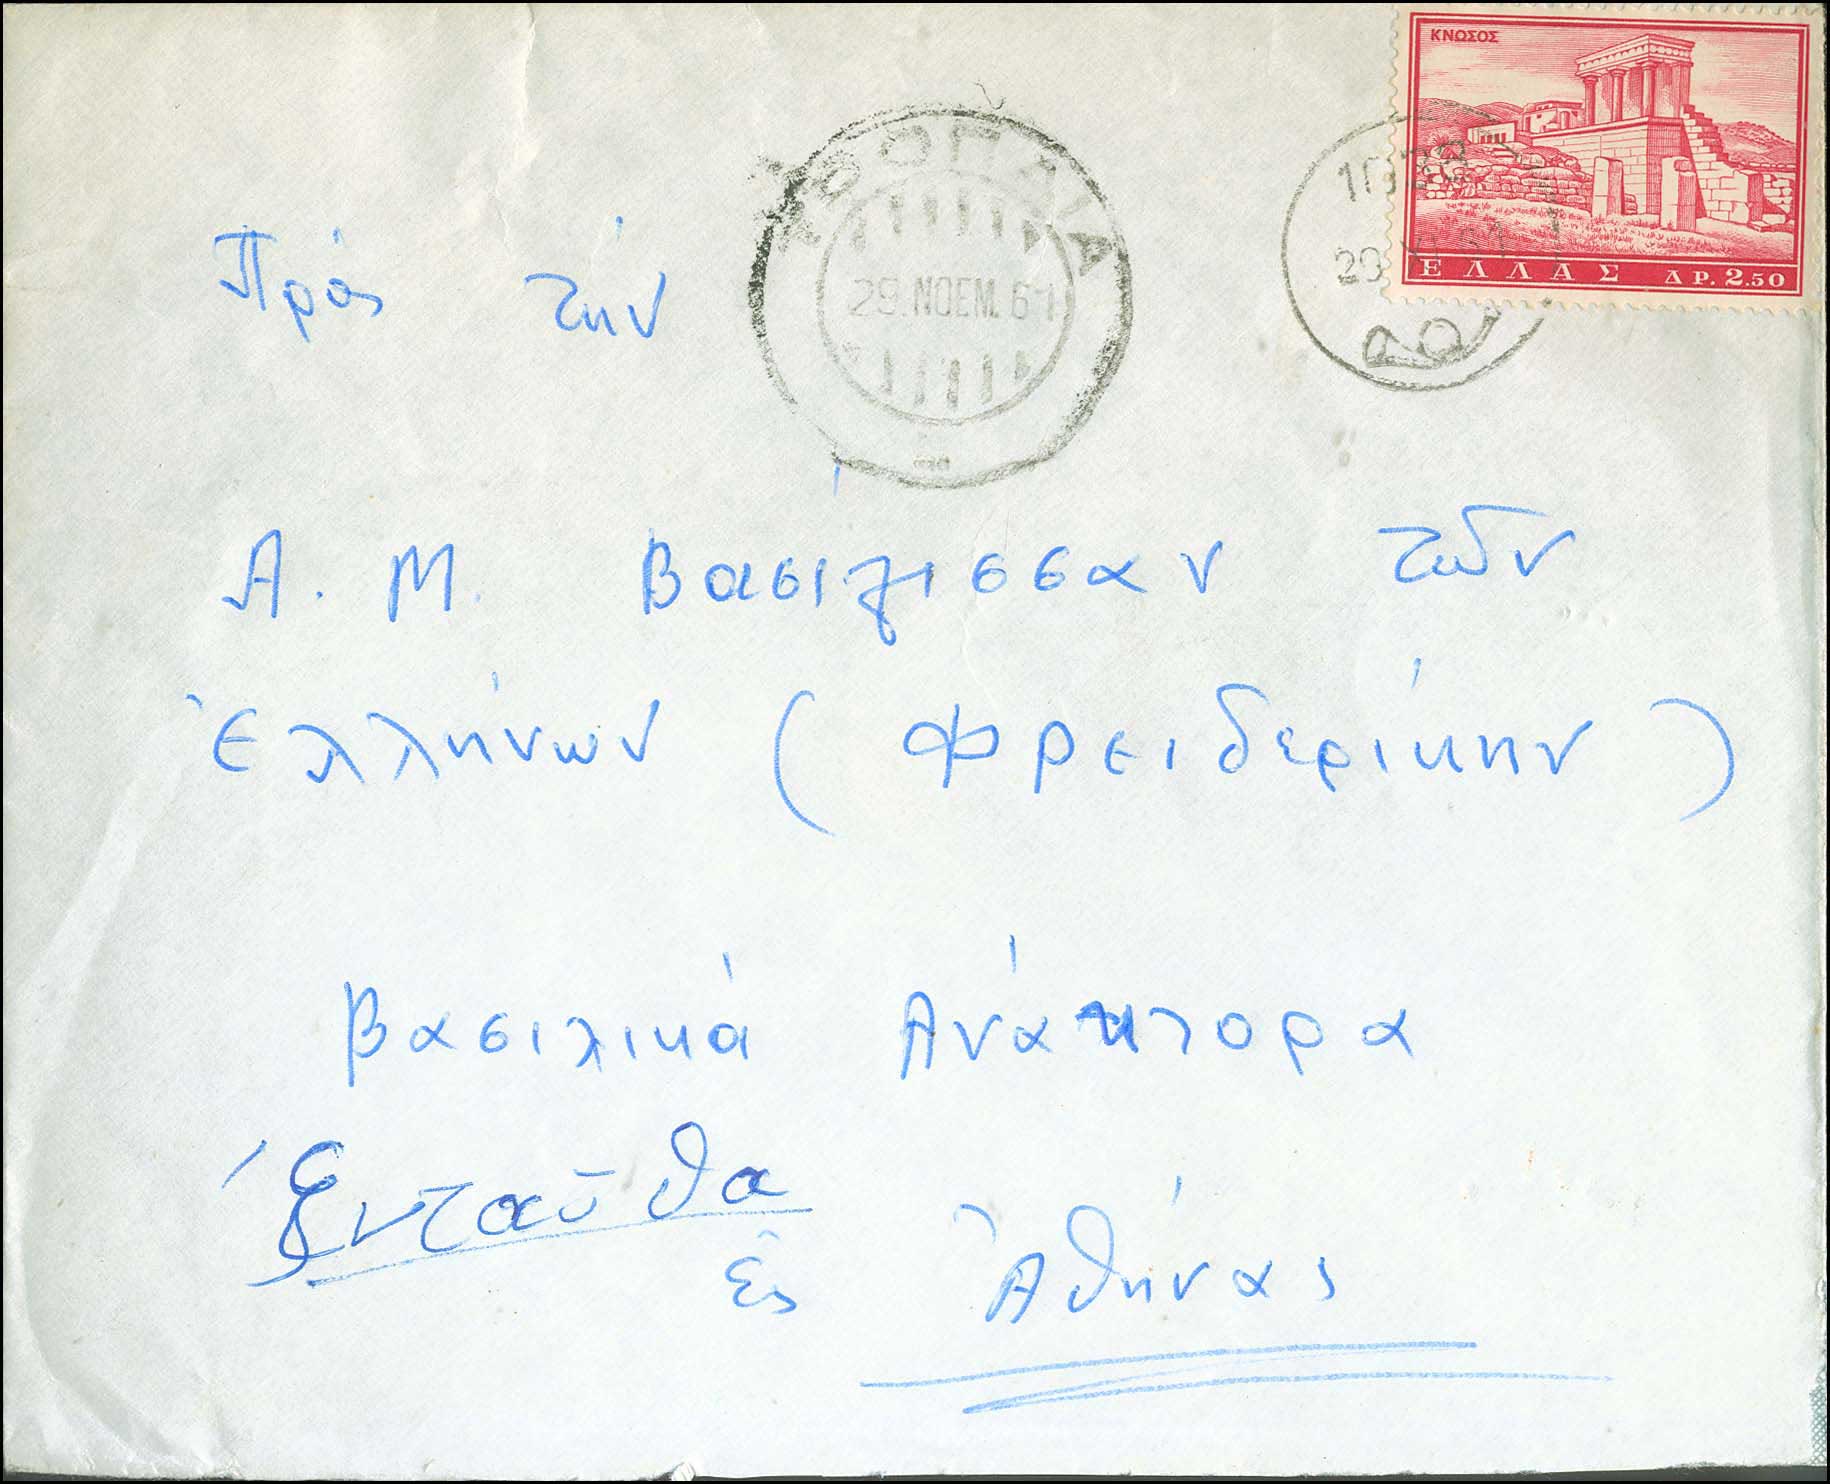 ΚΝΩΣΟΣ
ΕΛΛΑΣ ΔΡ. 2.50
29.ΝΟΕΜ.61
Πρός τήν
Α. Μ. Βασίλισσαν τῶν
Ἑλλήνων (Φρειδερίκην)
Βασιλικά Ἀνάκτορα
Ἐνταῦθα
Ἐς Ἀθήνας